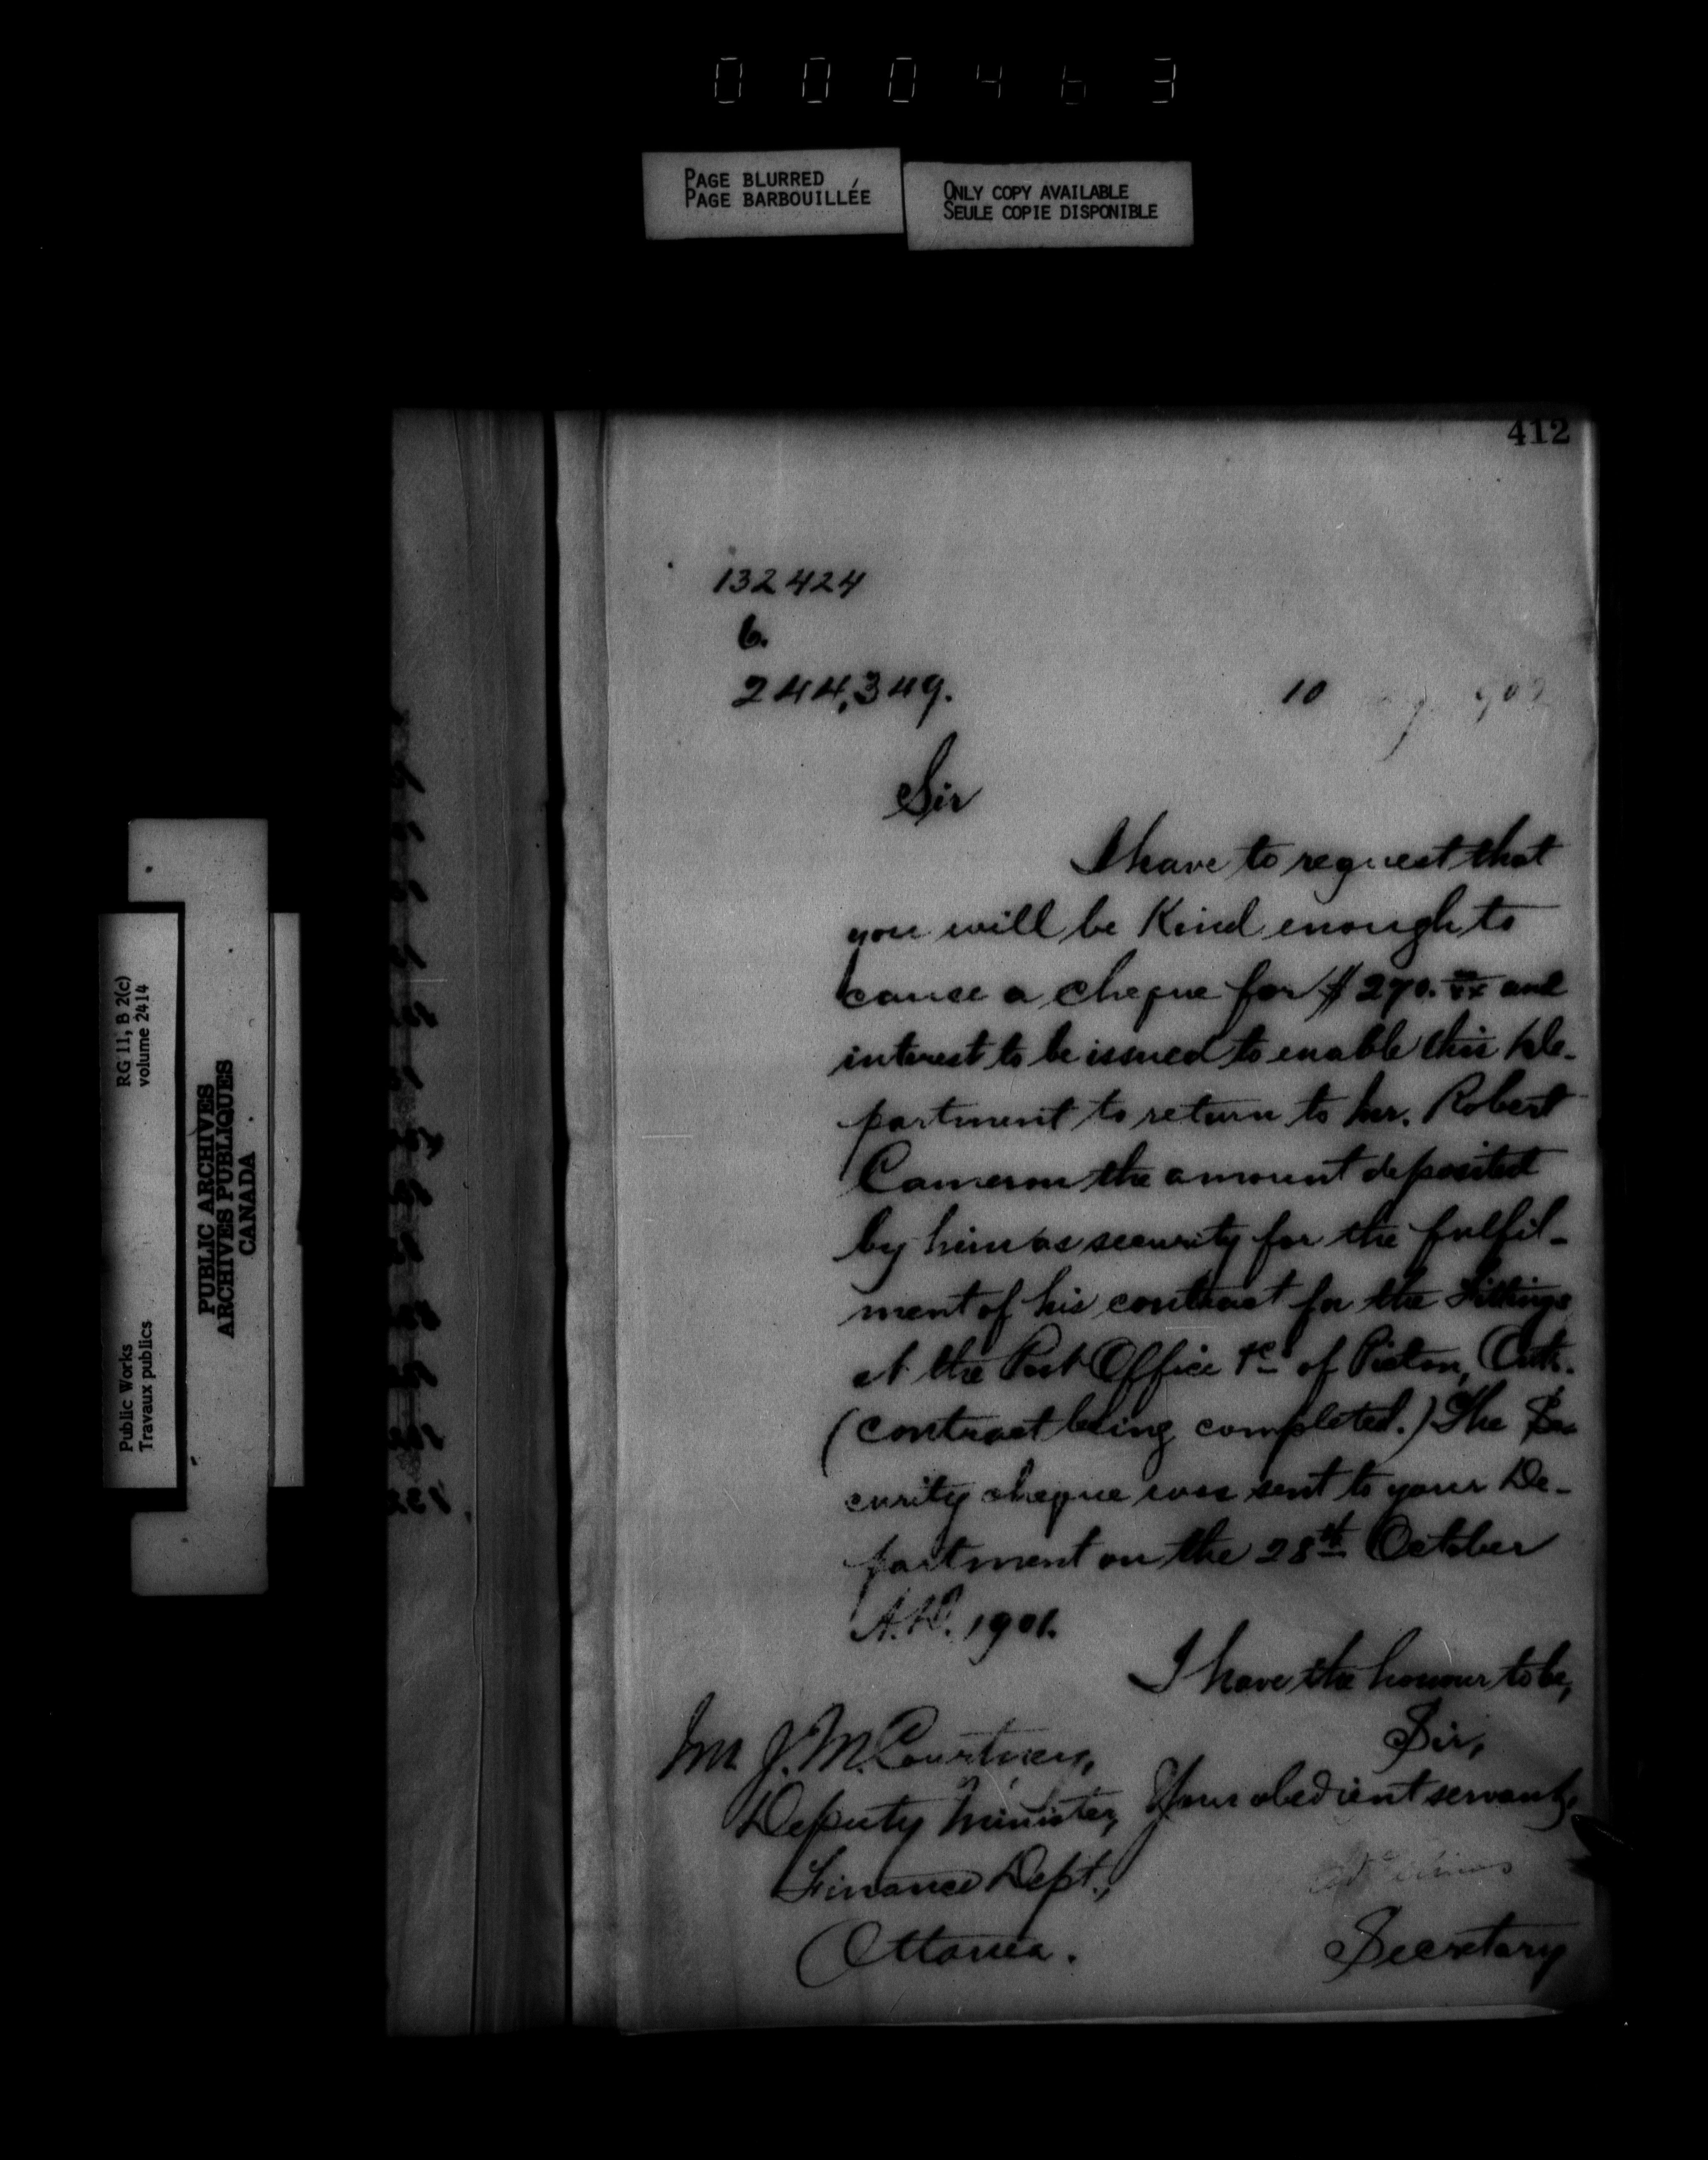 000463
PAGE BLURRED
PAGE BARBOUILLÉE
ONLY COPY AVAILABLE
SEULE COPIE DISPONIBLE
412
132424
6.
244,349.
10 902
Sir
I have to request that
you will be Kind enough to
cause a cheque for $270. xx/xx and
interest to be issued to enable this De-
partment to return to Mr. Robert
Cameron the amount deposited
by him as security for the fulfil-
ment of his contract for the Fittings
at the Post Office &c of Picton, Ont.
(contract being completed.) The Se-
curity cheque was sent to your De-
partment on the 28th October
A.D. 1901.
I have the honour to be,
Sir,
Your obedient servant,
Secretary
Mr J. M. Courtney,
Deputy Minister,
Finance Dept.,
Ottawa.
RG 11, B 2(c)
volume 2414
PUBLIC ARCHIVES
ARCHIVES PUBLIQUES
CANADA
Public Works
Travaux publics